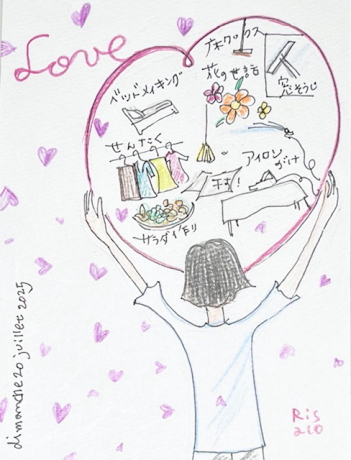 Love
床ワックス
ベッドメイキング
花のせ話
窓そうじ
せんたく
アイロン
がけ
サラダ作り
dimanche 20 juillet 2025
Ris
210